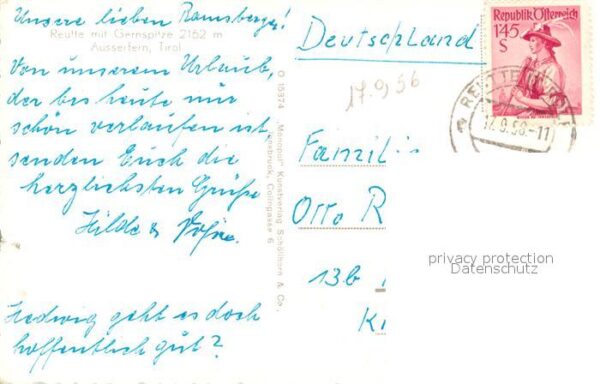 Unsere lieben Ramsberger!
Reutte mit Gernspitze 2162 m
Ausserfern, Tirol
Von unserem Urlaub,
der bis heute nur
schön verlaufen ist,
senden Euch die
herzlichsten Grüße
Hilde &
Hedwig geht es doch
hoffentlich gut?
O 15974 "Monopol" Kunstverlag Schöllhorn & Co.,
Innsbruck, Colingasse 6
Deutschland
17.9.56
Republik Österreich
1.45
S
17.9.56.-11
Famili
Otto R
13b
K
privacy protection
Datenschutz